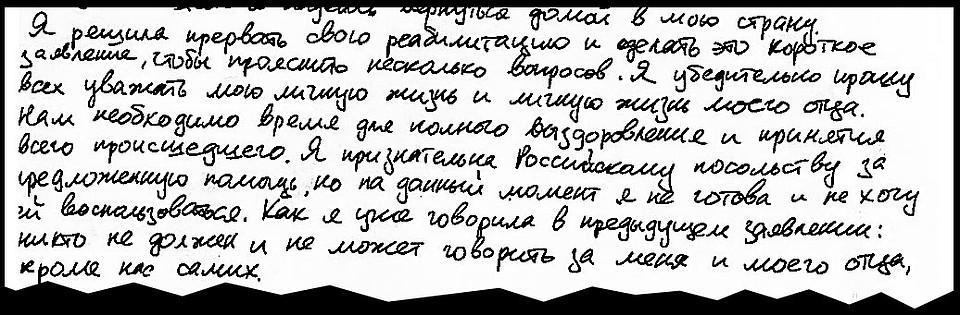 и надеюсь вернуться домой в мою страну.
Я решила прервать свою реабилитацию и сделать это короткое
заявление, чтобы прояснить несколько вопросов. Я убедительно прошу
всех уважать мою личную жизнь и личную жизнь моего отца.
Нам необходимо время для полного выздоровления и принятия
всего происшедшего. Я признательна Российскому посольству за
предложенную помощь, но на данный момент я не готова и не хочу
ей воспользоваться. Как я уже говорила в предыдущем заявлении:
никто не должен и не может говорить за меня и моего отца,
кроме нас самих.